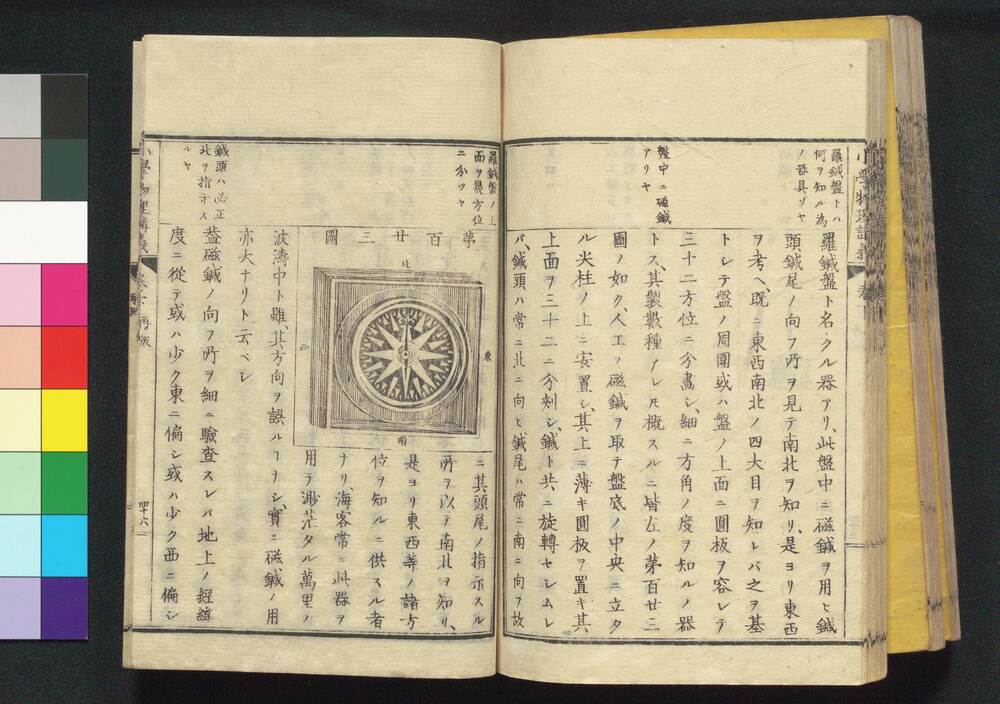 羅鍼盤トハ
何ヲ知ル為
ノ器具ゾヤ
盤中ニ磁鍼
アリヤ
羅鍼盤ト名クル器アリ、此盤中ニ磁鍼ヲ用ヒ鍼
頭鍼尾ノ向フ所ヲ見テ南北ヲ知リ、是ヨリ東西
ヲ考ヘ既ニ東西南北ノ四大目ヲ知レバ之ヲ基
トシテ盤ノ周圍或ハ盤ノ上面ニ圓板ヲ容レテ
三十二方位ニ分畫シ、細ニ方角ノ度ヲ知ルノ器
トス、其製數種アレ𪜈概スルニ皆左ノ第百廿三
圖ノ如ク、人工ノ磁鍼ヲ取テ盤底ノ中央ニ立タ
ル尖柱ノ上ニ安置シ、其上ニ薄キ圓板ヲ置キ其
上面ヲ三十二ニ分刻シ、鍼ト共ニ旋轉セシムレ
バ、鍼頭ハ常ニ北ニ向ヒ鍼尾ハ常ニ南ニ向フ故
羅鍼盤ノ上
面ヲ幾方位
ニ分ツヤ
鍼頭ハ必正
北ヲ指示ス
ルヤ
第百廿三圖
北
東
西
南
ニ其頭尾ノ指示スル
所ヲ以テ南北ヲ知リ、
是ヨリ東西等ノ諸方
位ヲ知ルニ供スル者
ナリ、海客常ニ此器ヲ
用テ渺茫タル萬里ノ
波濤中ト雖、其方向ヲ誤ルヿナシ、實ニ磁鍼ノ用
亦大ナリト云ベシ
葢磁鍼ノ向フ所ヲ細ニ驗査スレバ地上ノ經緯
度ニ從テ或ハ少ク東ニ偏シ或ハ少ク西ニ偏シ
小學物理講義
再版
四十六